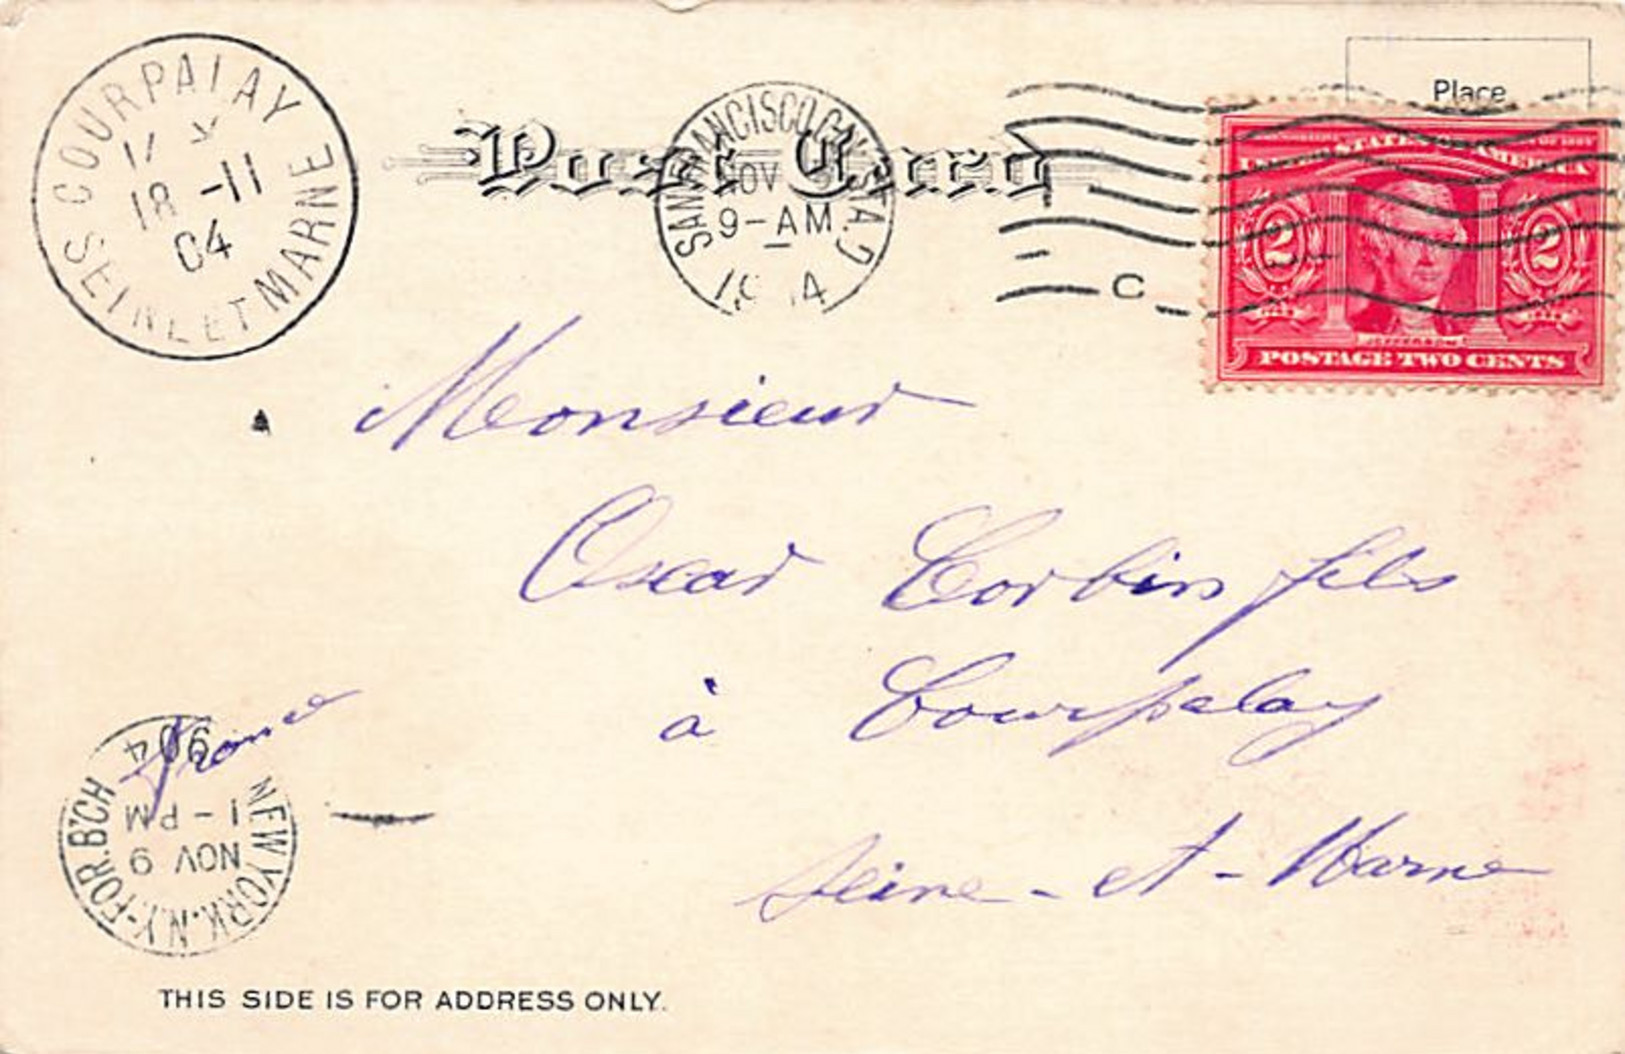 COURPALAY
18 - 11
04
SEINE ET MARNE
Post Card
SAN FRANCISCO, CAL. STA. D
NOV
9-AM.
1904
C
Place
UNITED STATES OF AMERICA
2 2
JEFFERSON
POSTAGE TWO CENTS
Monsieur
Oscar Corbin fils
à Courpalay
Seine-et-Marne
France
NEW YORK. N.Y.-FOR. B'CH
NOV 9
1-PM
1904
THIS SIDE IS FOR ADDRESS ONLY.